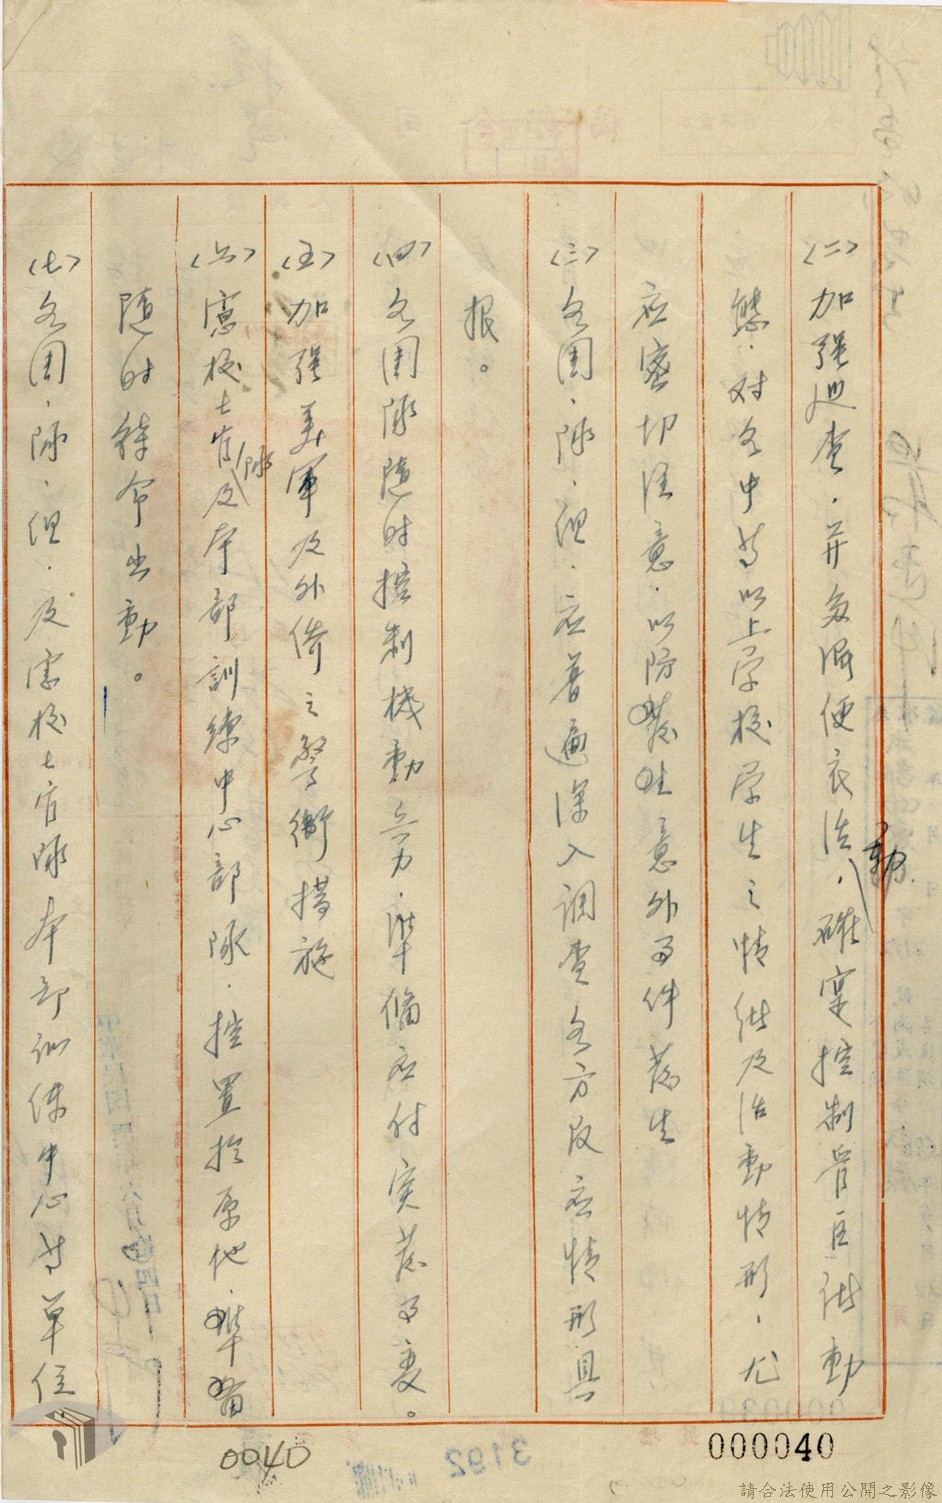 (二)加强巡查，并多派便衣活動，確實控制管區儕動
態，对各中等以上学校学生之情緒及活動情形，尤
应密切注意，以防發生意外事件發生
(三)各團、隊、組、应普遍深入調查各方反应情形具
报。
(四)各團隊随时控制機動兵力，準備应付突发事变。
(五)加强美軍及外僑之警衛措施
(六)憲校士官隊及本部訓練中心部隊，控置於原地，準備
随时待命出動。
(七)各团、隊、組、及憲校士官隊本部训练中心等單位
0040
3192
000040
請合法使用公開之影像